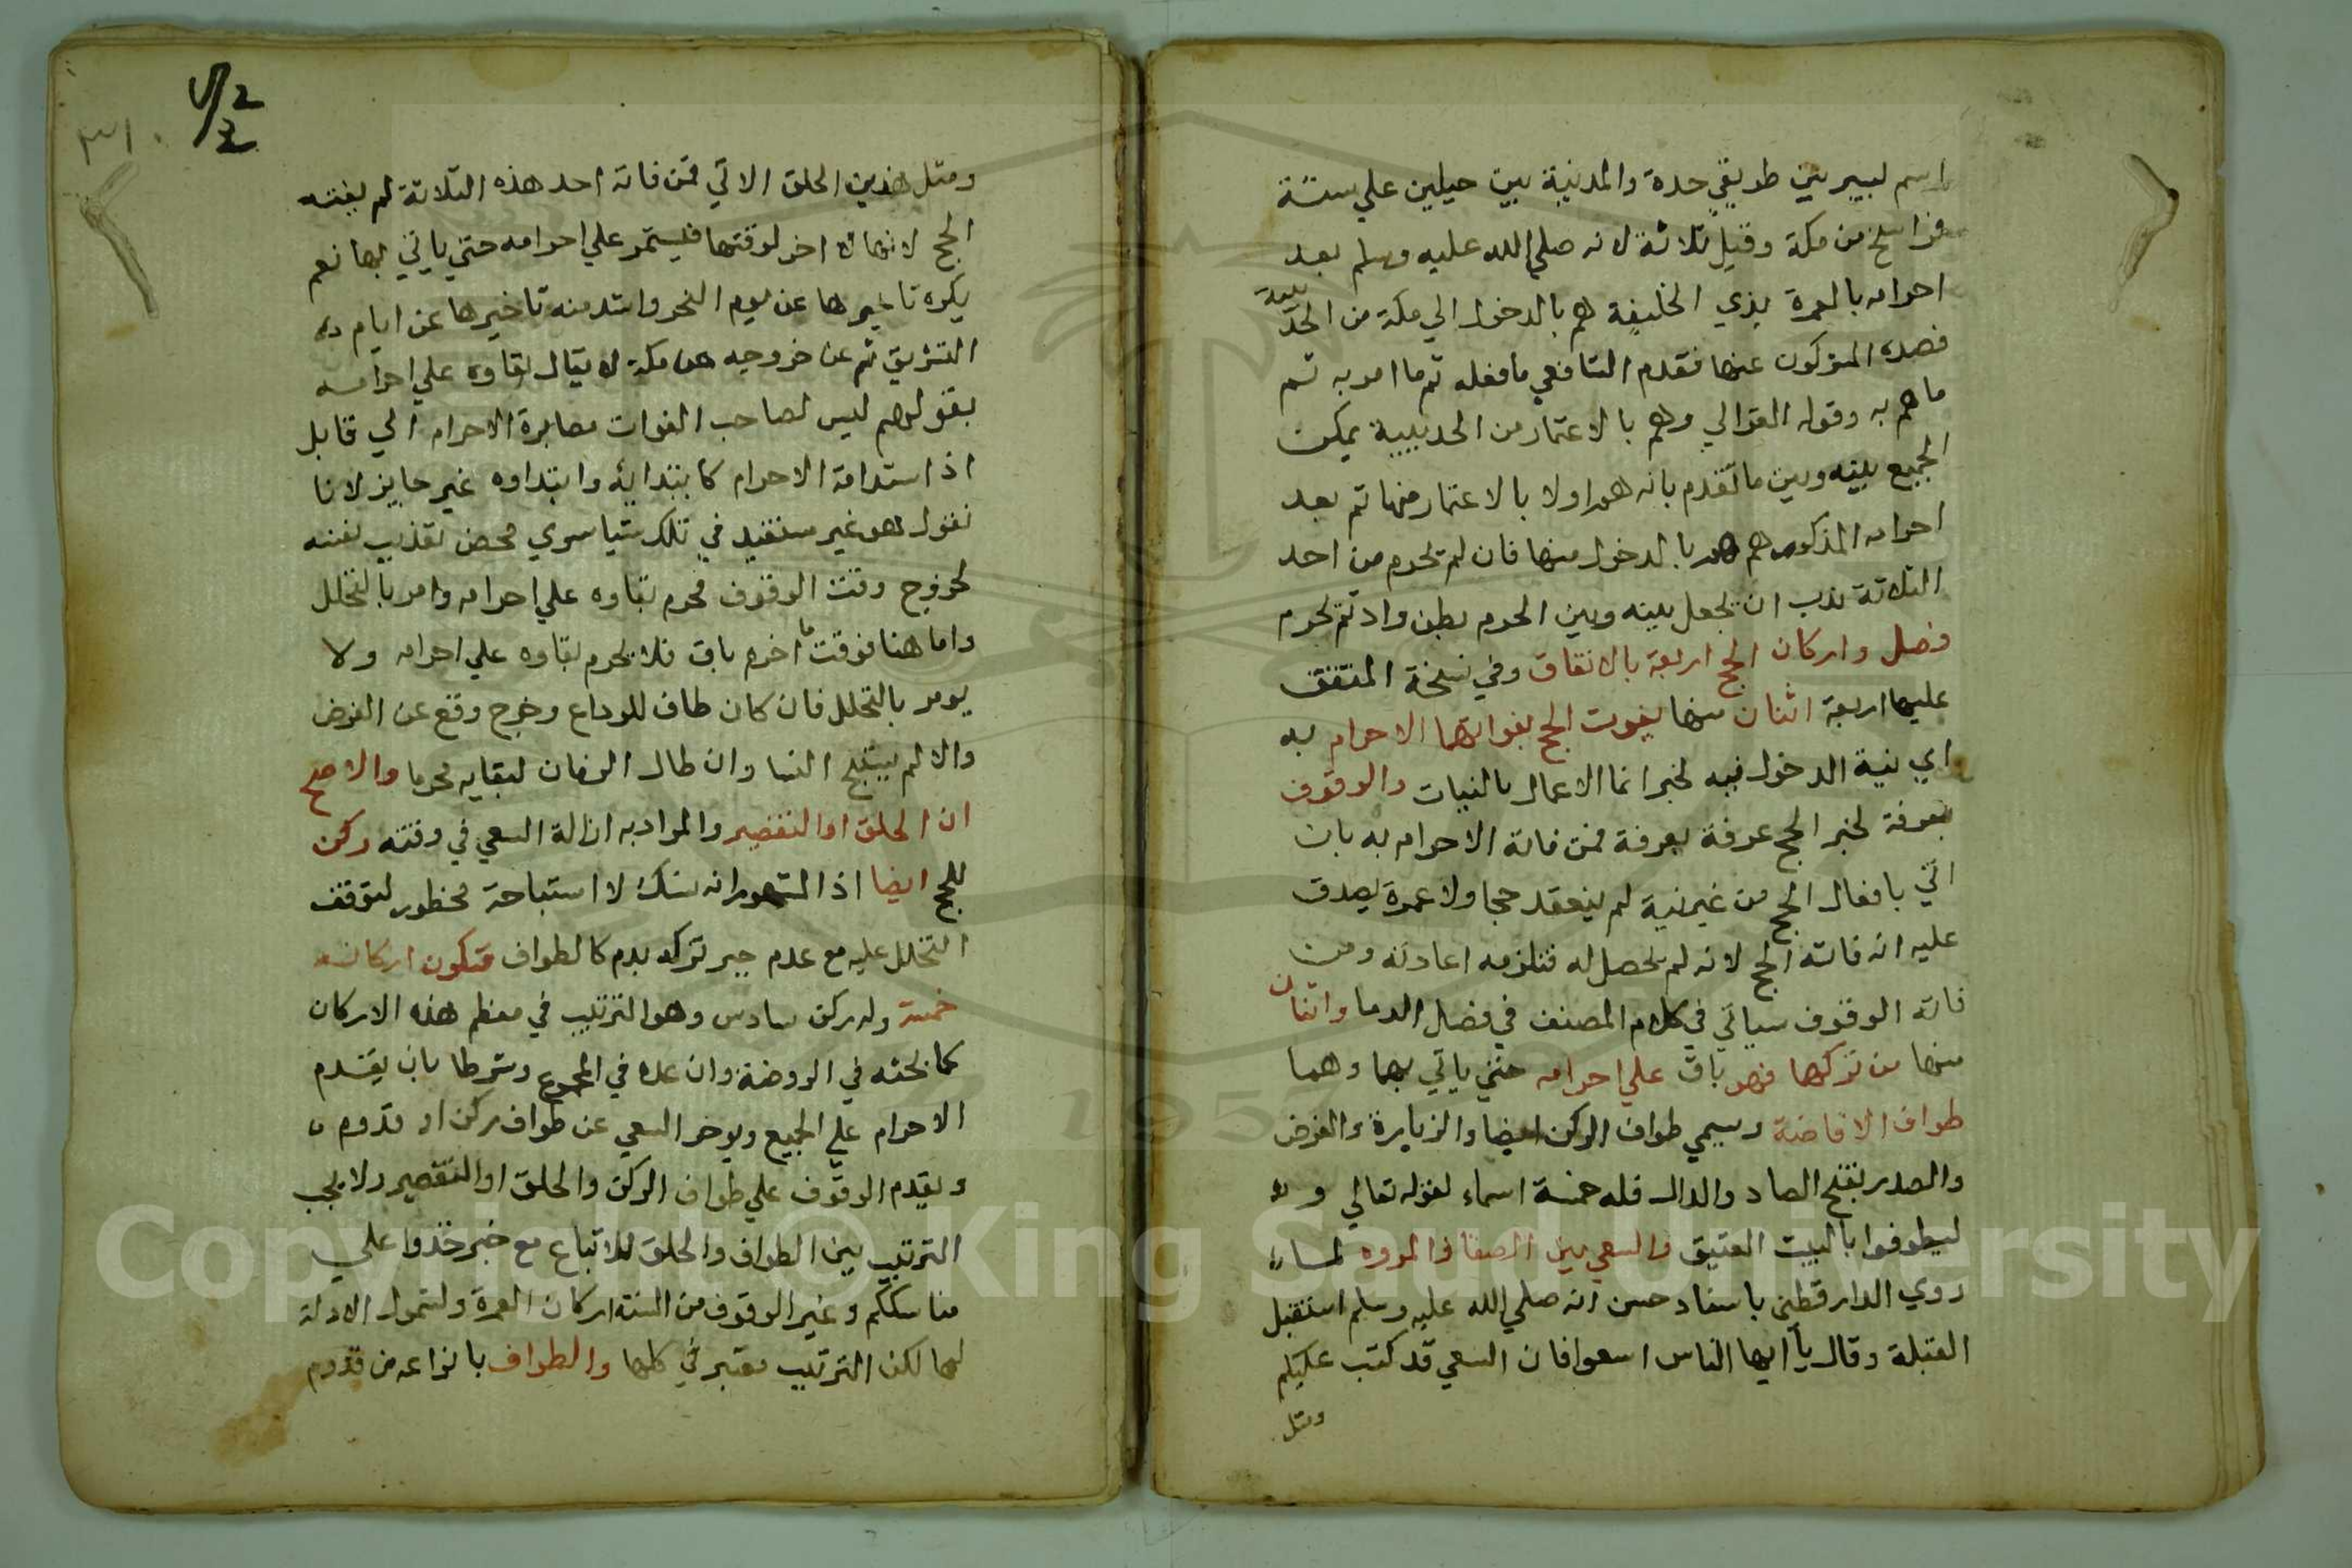 اسم لبير بين طريقي جدة والمدينة بين جبلين علي ستة
فراسخ من مكة وقيل ثلاثة لانه صلي الله عليه وسلم بعد
احرامه بالعمرة بذي الحليفة هم بالدخول الي مكة من الحديبية
فصده المشركون عنها فقدم الشافعي ما فعله ثم ما امر به ثم
ما هم به وقول الغزالي وهم بالاعتمار من الحديبية يمكن
الجمع بينه وبين ما تقدم بانه هم اولا بالاعتمار منها ثم بعد
احرامه المذكور هم بالدخول منها فان لم يحرم من احد
الثلاثة ندب ان يجعل بينه وبين الحرم بطن واد ثم يحرم
فصل واركان الحج اربعة بالاتفاق وفي نسخة المتفق
عليها اربعة اثنان منها يفوت الحج بفواتهما الاحرام به
اي نية الدخول فيه لخبر انما الاعمال بالنيات والوقوف
بعرفة لخبر الحج عرفة بعرفة فمن فاتة الاحرام به بان
اتي بافعال الحج من غير نية لم ينعقد حجا ولا عمرة يصدق
عليه انه فاته الحج لانه لم يحصل له فتلزمه اعادته ومن
فاته الوقوف سياتي في كلام المصنف في فصل الدما واثنان
منها من تركها فهو باق علي احرامه حتي ياتي بها وهما
طواف الافاضة ويسمي طواف الركن ايضا والزيارة والفرض
والصدر بفتح الصاد والدال فله خمسة اسماء لقوله تعالي و
ليطوفوا بالبيت العتيق والسعي بين الصفا والمروه لما
روي الدارقطني باسناد حسن انه صلي الله عليه وسلم استقبل
القبلة وقال يا ايها الناس اسعوا فان السعي قد كتب عليكم
ومثل
٣١
ومثل هذين الحلق الاتي فمن فاته احد هذه الثلاثة لم يفته
الحج لانها لا اخر لوقتها فيستمر علي احرامه حتي ياتي بها نعم
يكره تاخيرها عن يوم النحر واشد منه تاخيرها عن ايام
التشريق ثم عن خروجه من مكة لا يقال بقاوه علي احرامه
بقولهم ليس لصاحب الفوات مصابرة الاحرام الي قابل
اذ استدامة الاحرام كابتدايه وابتداوه غير جايز لانا
نقول هو غير مستفيد في تلك شيا سوي محض تعذيب نفسه
لخروج وقت الوقوف فحرم بقاوه علي احرامه وامر بالتحلل
واما هنا فوقت ما اخره باق فلا يحرم بقاوه علي احرامه ولا
يومر بالتحلل فان كان طاف للوداع وخرج وقع عن الفرض
والا لم يستبح النسا وان طال الزمان لبقايه محرما والاصح
ان الحلق او التقصير والمراد به ازالة السعي في وقته ركن
للحج ايضا اذ المشهور انه نسك لا استباحة محظور لتوقف
التحلل عليه مع عدم جبر تركه بدم كالطواف فتكون اركانه
خمسة وله ركن سادس وهو الترتيب في معظم هذه الاركان
كما بحثه في الروضة وان عده في المجموع شرطا بان يقدم
الاحرام علي الجميع ويوخر السعي عن طواف ركن او قدوم
ويقدم الوقوف علي طواف الركن والحلق او التقصير ولا يجب
الترتيب بين الطواف والحلق للاتباع مع خبر خذوا علي
مناسككم وغير الوقوف من الستة اركان العمرة ولشمول الادلة
لها لكن الترتيب معتبر في كلها والطواف بانواعه من قدوم
Copyright © King Saud University
1957